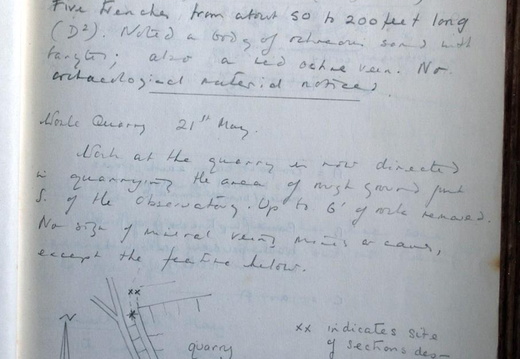 Five trenches from about 50 to 200 feet long
(D2). Noted a body of ochreous sand with
also a red ochre vein. No
archaeological material noticed
Quarry 21st May.
Work at the quarry is now directed
to quarrying the area of rough ground just
S. of the Observatory. Up to 6' of rock removed.
No sign of mineral veins, mines or caves,
except the feature below.
xx
x
N
quarry
xx indicates site
of sections des-